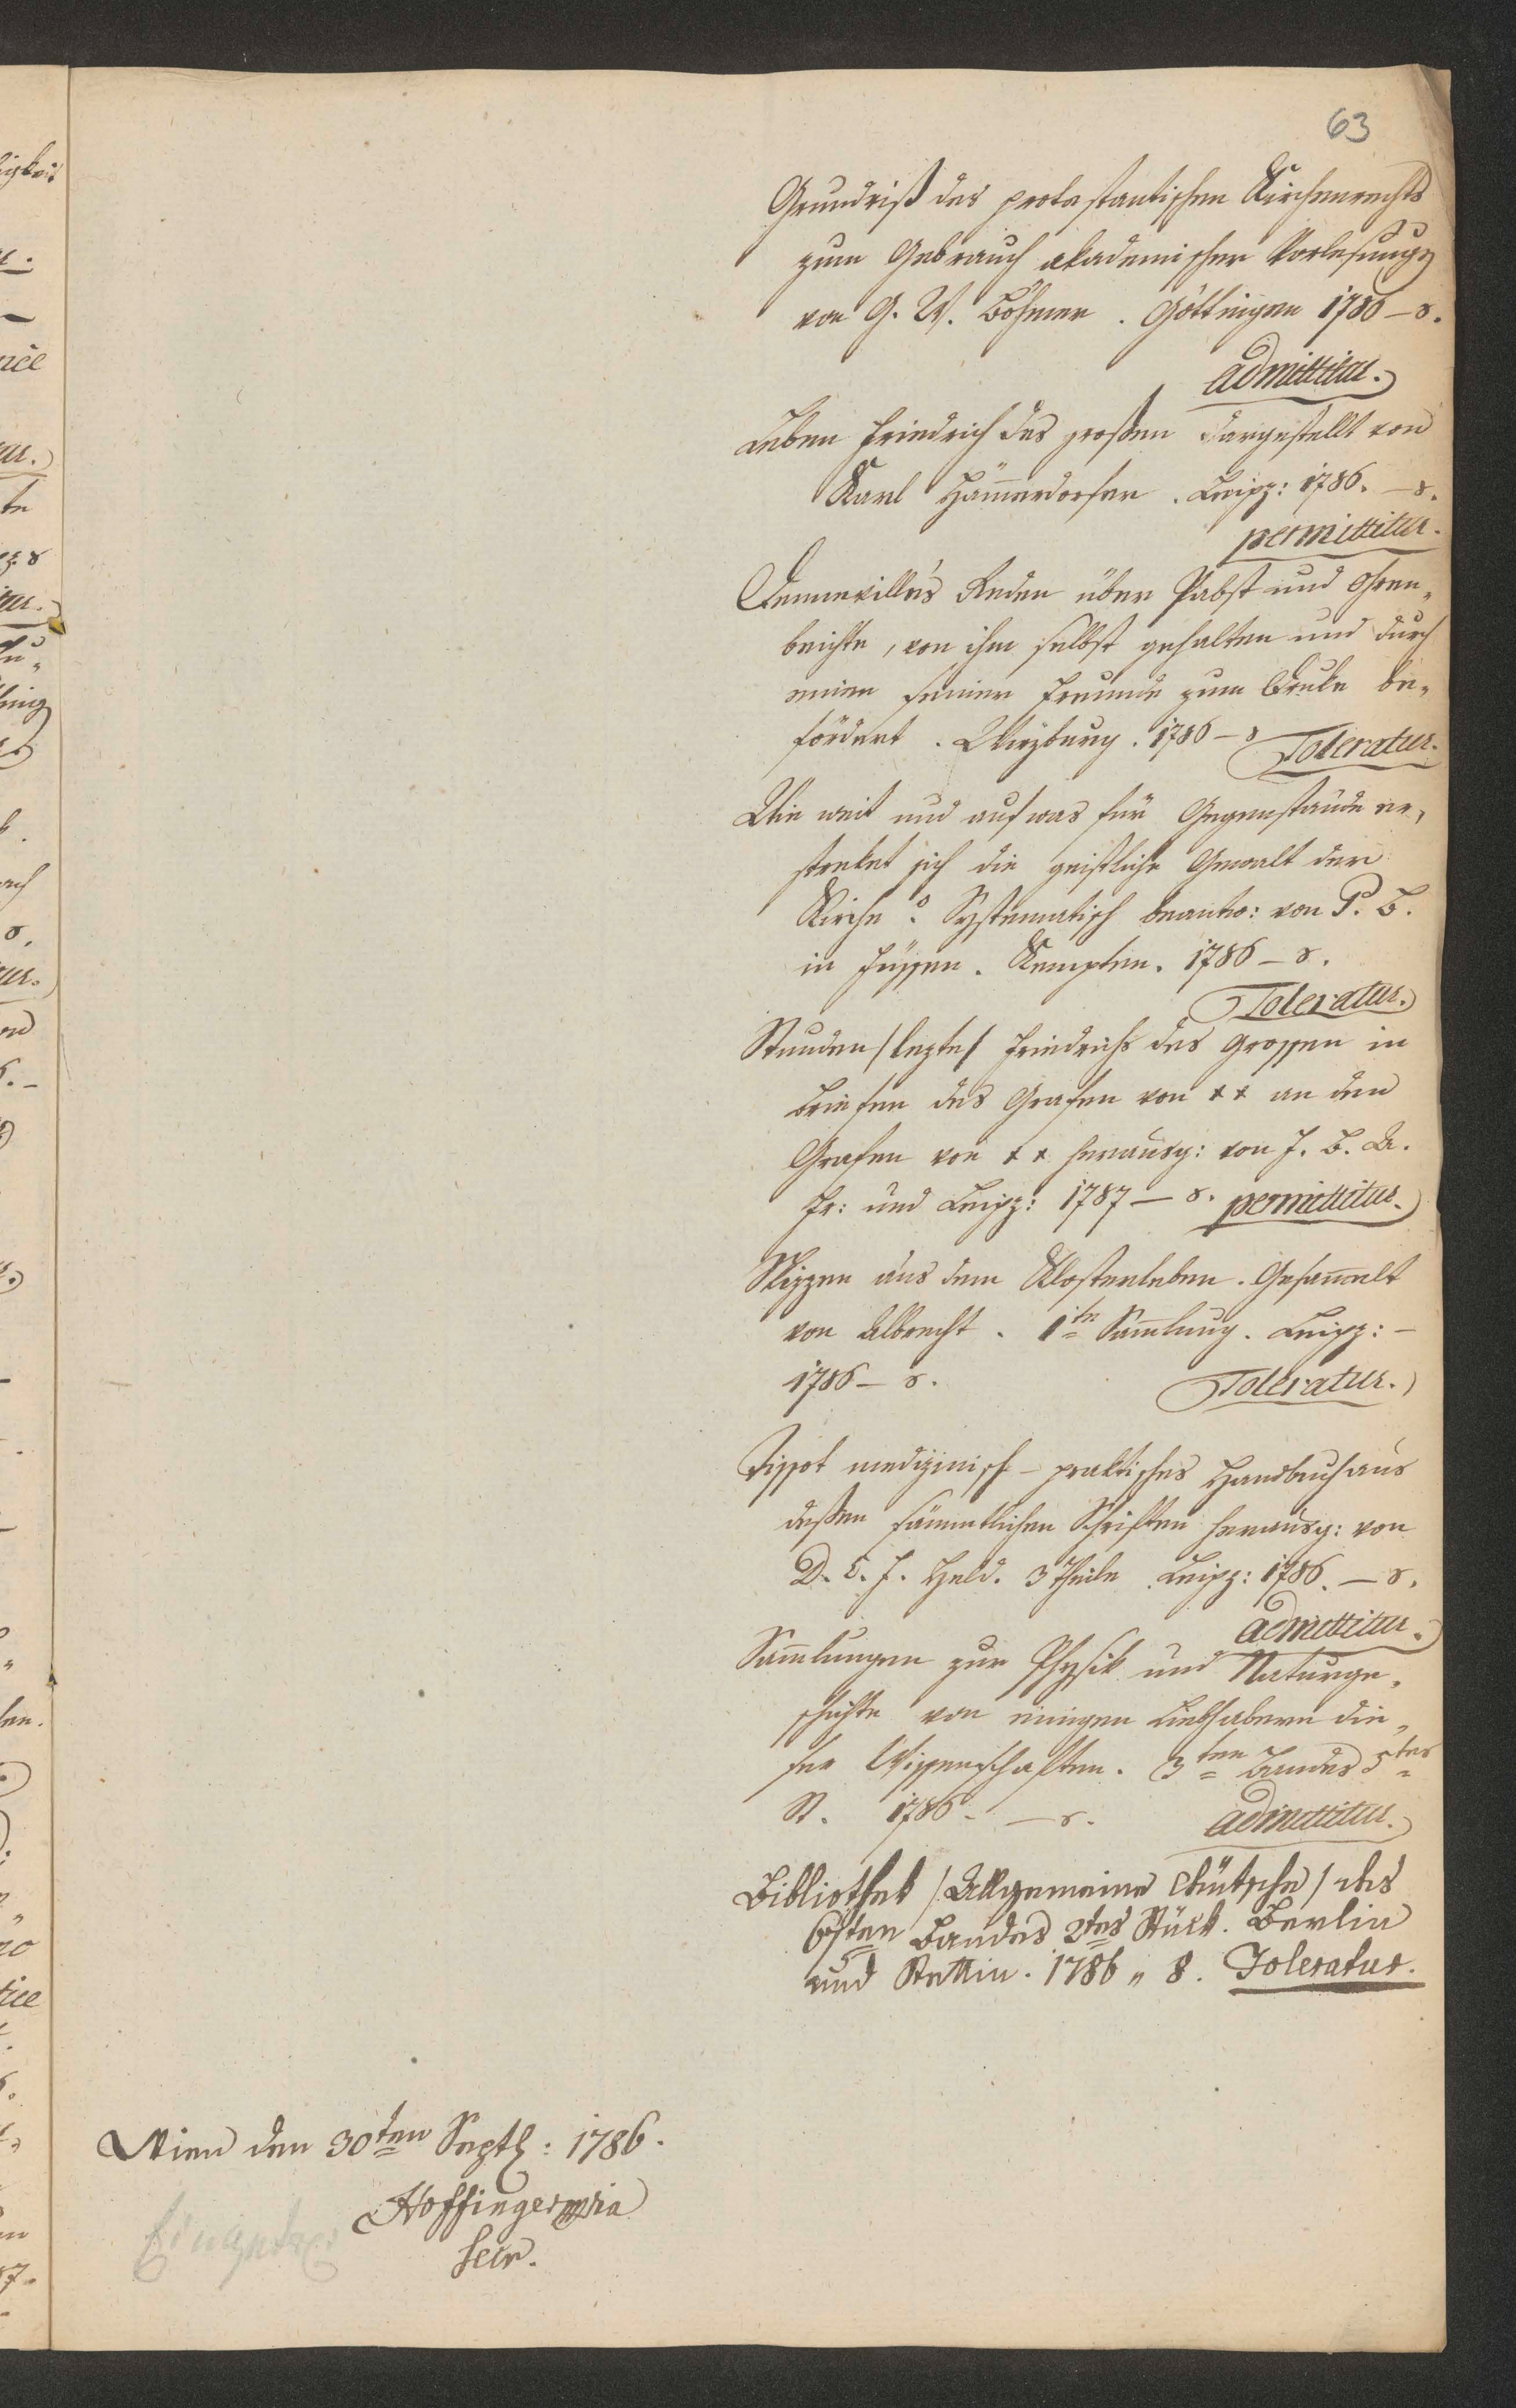 63
Grundriß des protestantischen Kirchenrechts
zum Gebrauch akademischer Vorlesungen
von G. W. Böhmer. Göttingen 1786 – 8.
admittitur.
Leben Friedrich des großen dargestellt von
Karl Ham̄erdorfer. Leipz: 1786. – 8.
permittitur.
Dennevilles Reden über Pabst und Ohren„
beichte, von ihm selbst gehalten und durch
einen seiner Freunde zum Druke be„
fördert. Wirzburg. 1786 – 8 Toleratur.
Wie weit und auf was für Gegenstände er„
streket sich die geistliche Gewalt der
Kirche? Systematisch beantw: von P. B.
in Füssen. Kempten. 1786 – 8.
Toleratur.
Stunden / lezte / Friedrichs des Grossen in
Briefen des Grafen von ** an den
Grafen von ** herausg: von J. B. A.
Fr: und Leipz: 1787 – 8. permittitur.
Skizzen aus dem Klosterleben. Gesam̄elt
von Albrecht. 1te Sam̄lung. Leipz: –
1786 – 8. Toleratur.
Tissot medizinisch – praktisches Handbuch aus
deßen sämmtlichen Schriften herausg: von
D. C. F. Held. 3 Theile Leipz: 1786. – 8.
admittitur.
Sam̄lungen zur Physik und Naturge„
schichte von einigen Liebhabern die„
ser Wissenschaften. 3ten Bandes 5tes
St. 1786. – 8. admittitur.
Bibliothek / Allgemeine deutsche / des
Bandes 2tes Stück. Berlin
und Stettin. 1786 „ 8. Toleratur.
Wien den 30ten Septb: 1786.
Hoffinger mpria
Secr.